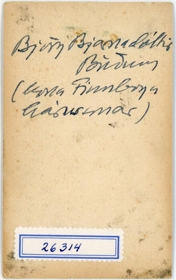 Björg Bjarnadóttir
Búðum
(kona Finnboga
Lárussonar)
26314